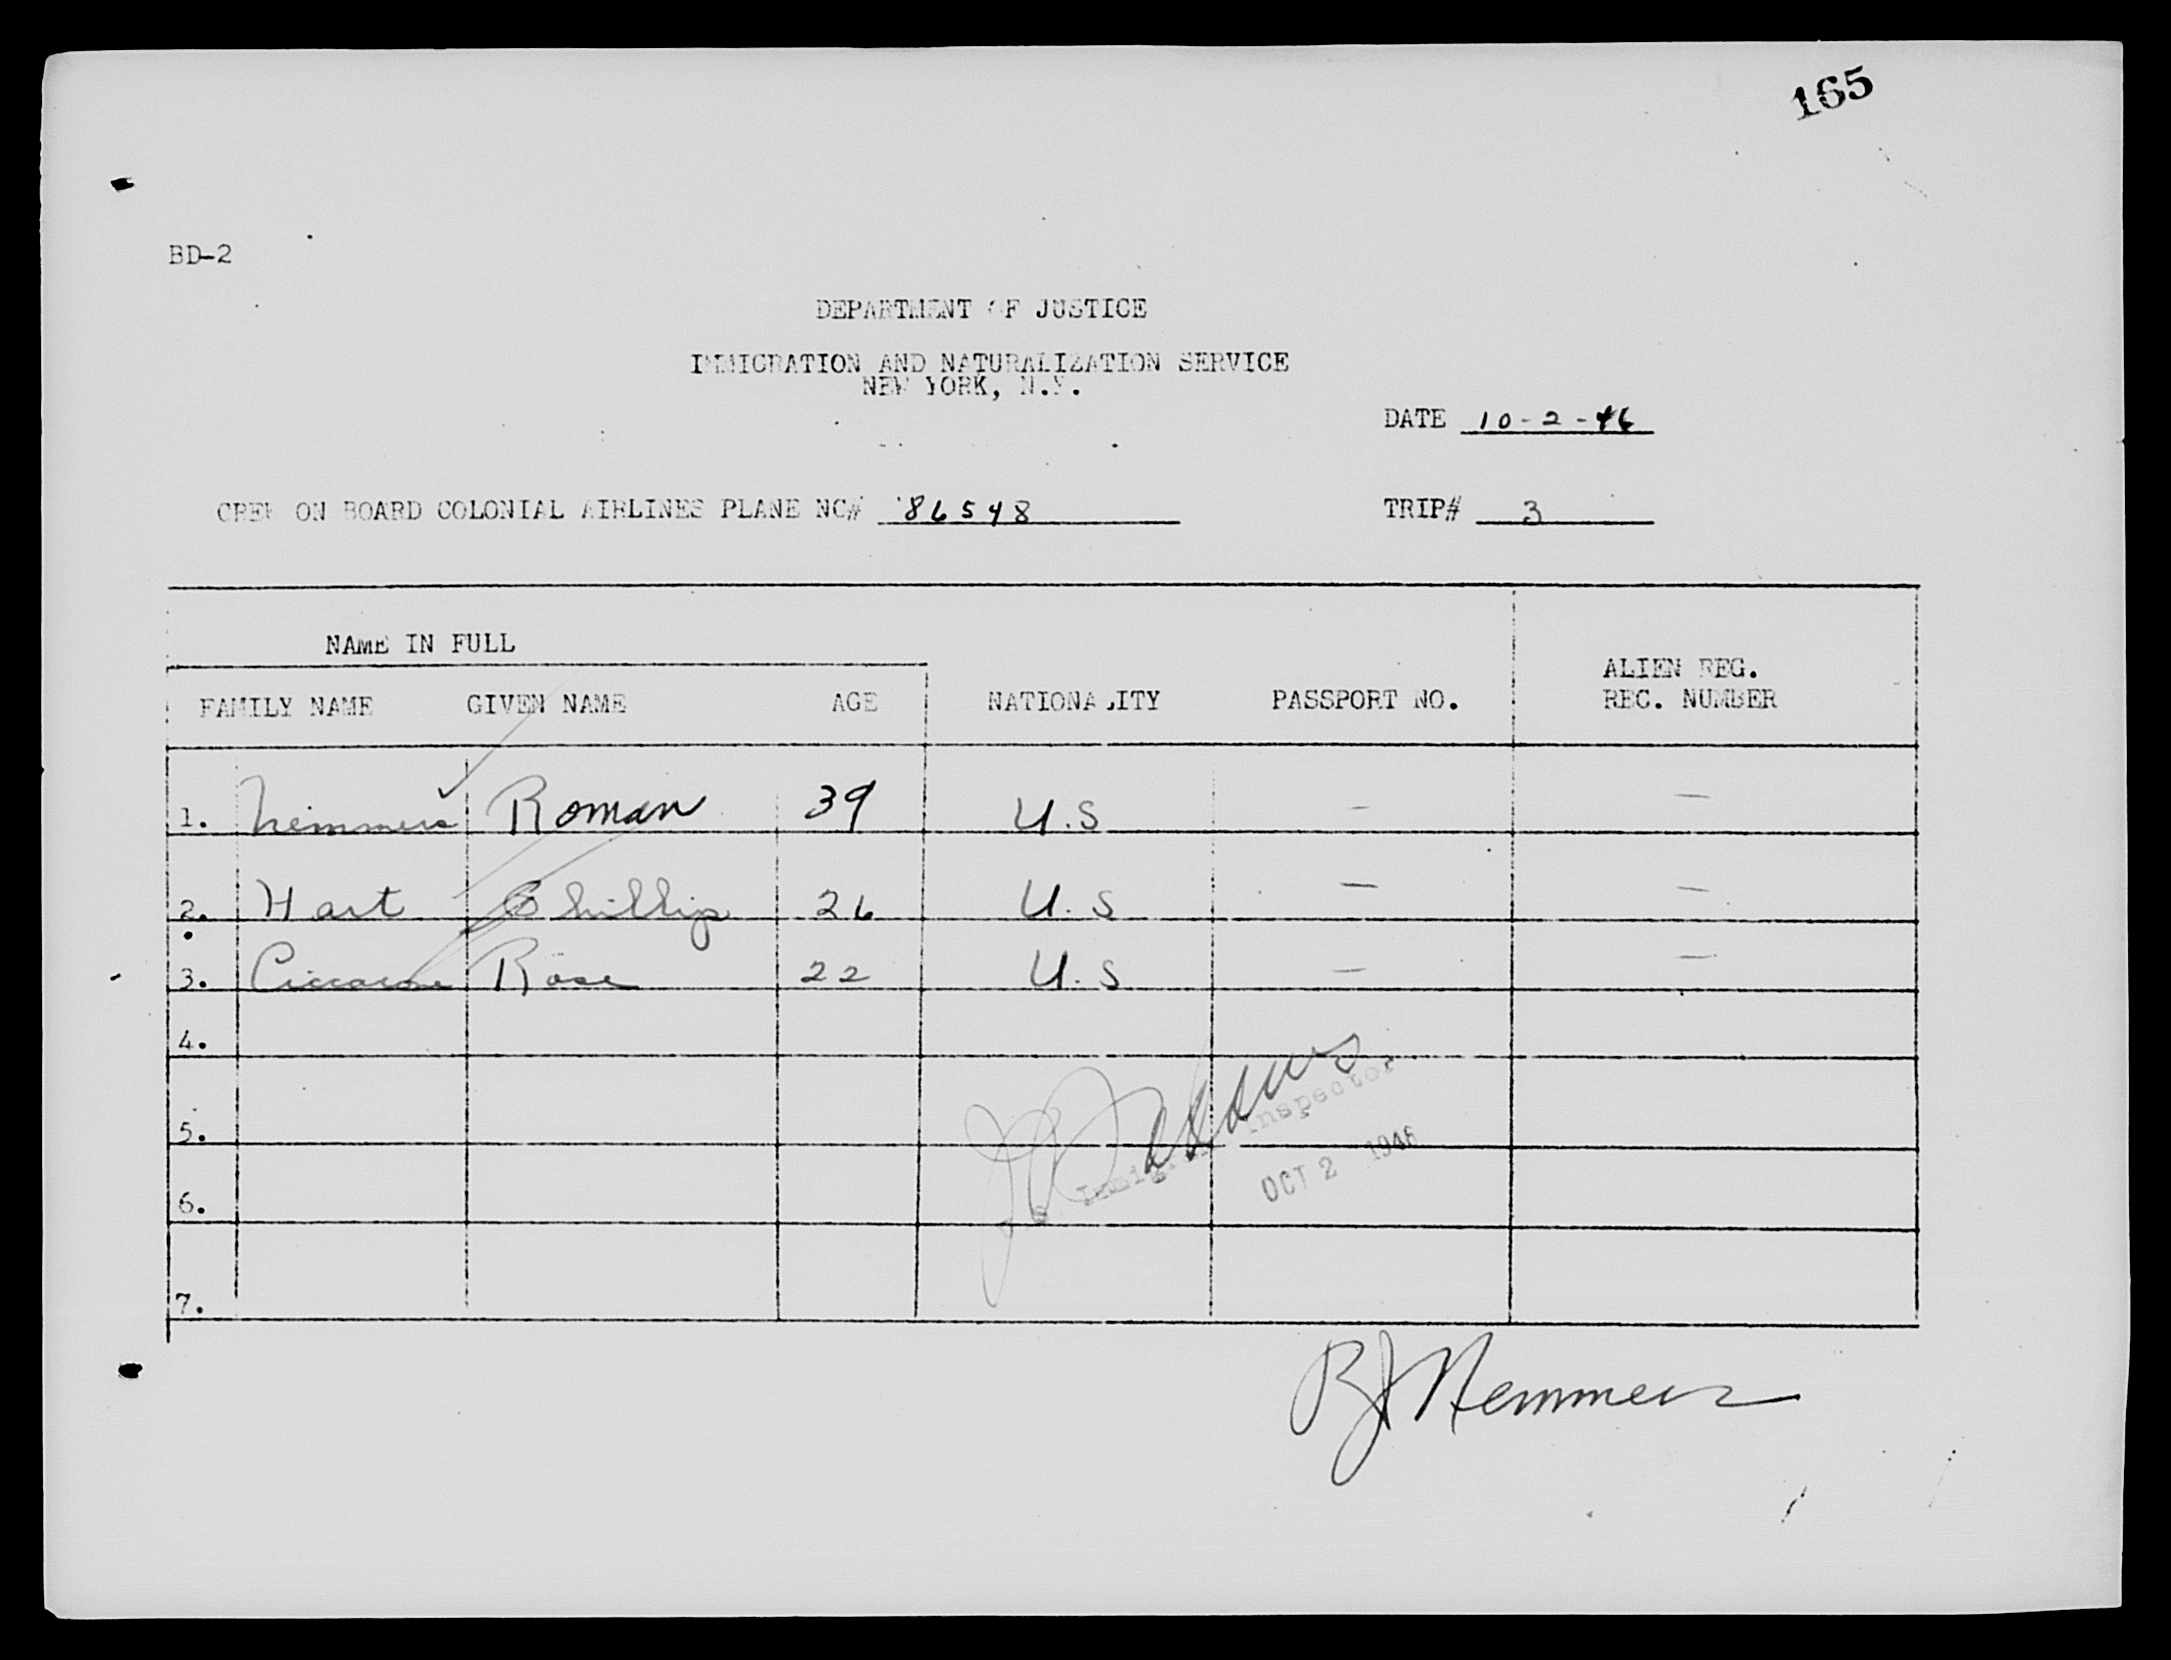 165
BD-2
DEPARTMENT OF JUSTICE
IMMIGRATION AND NATURALIZATION SERVICE
NEW YORK, N.Y.
DATE 10-2-46
CREW ON BOARD COLONIAL AIRLINES PLANE NC# 86548 TRIP# 3
NAME IN FULL
FAMILY NAME GIVEN NAME AGE NATIONALITY PASSPORT NO. ALIEN REG. REC. NUMBER
1. Nemmers Roman 39 U.S — —
2. Hart Phillip 26 U.S — —
3. Ciccarone Rose 22 U.S — —
4.
5.
6.
7.
U.S. Immigrant Inspector
OCT 2 1946
RJ Nemmers